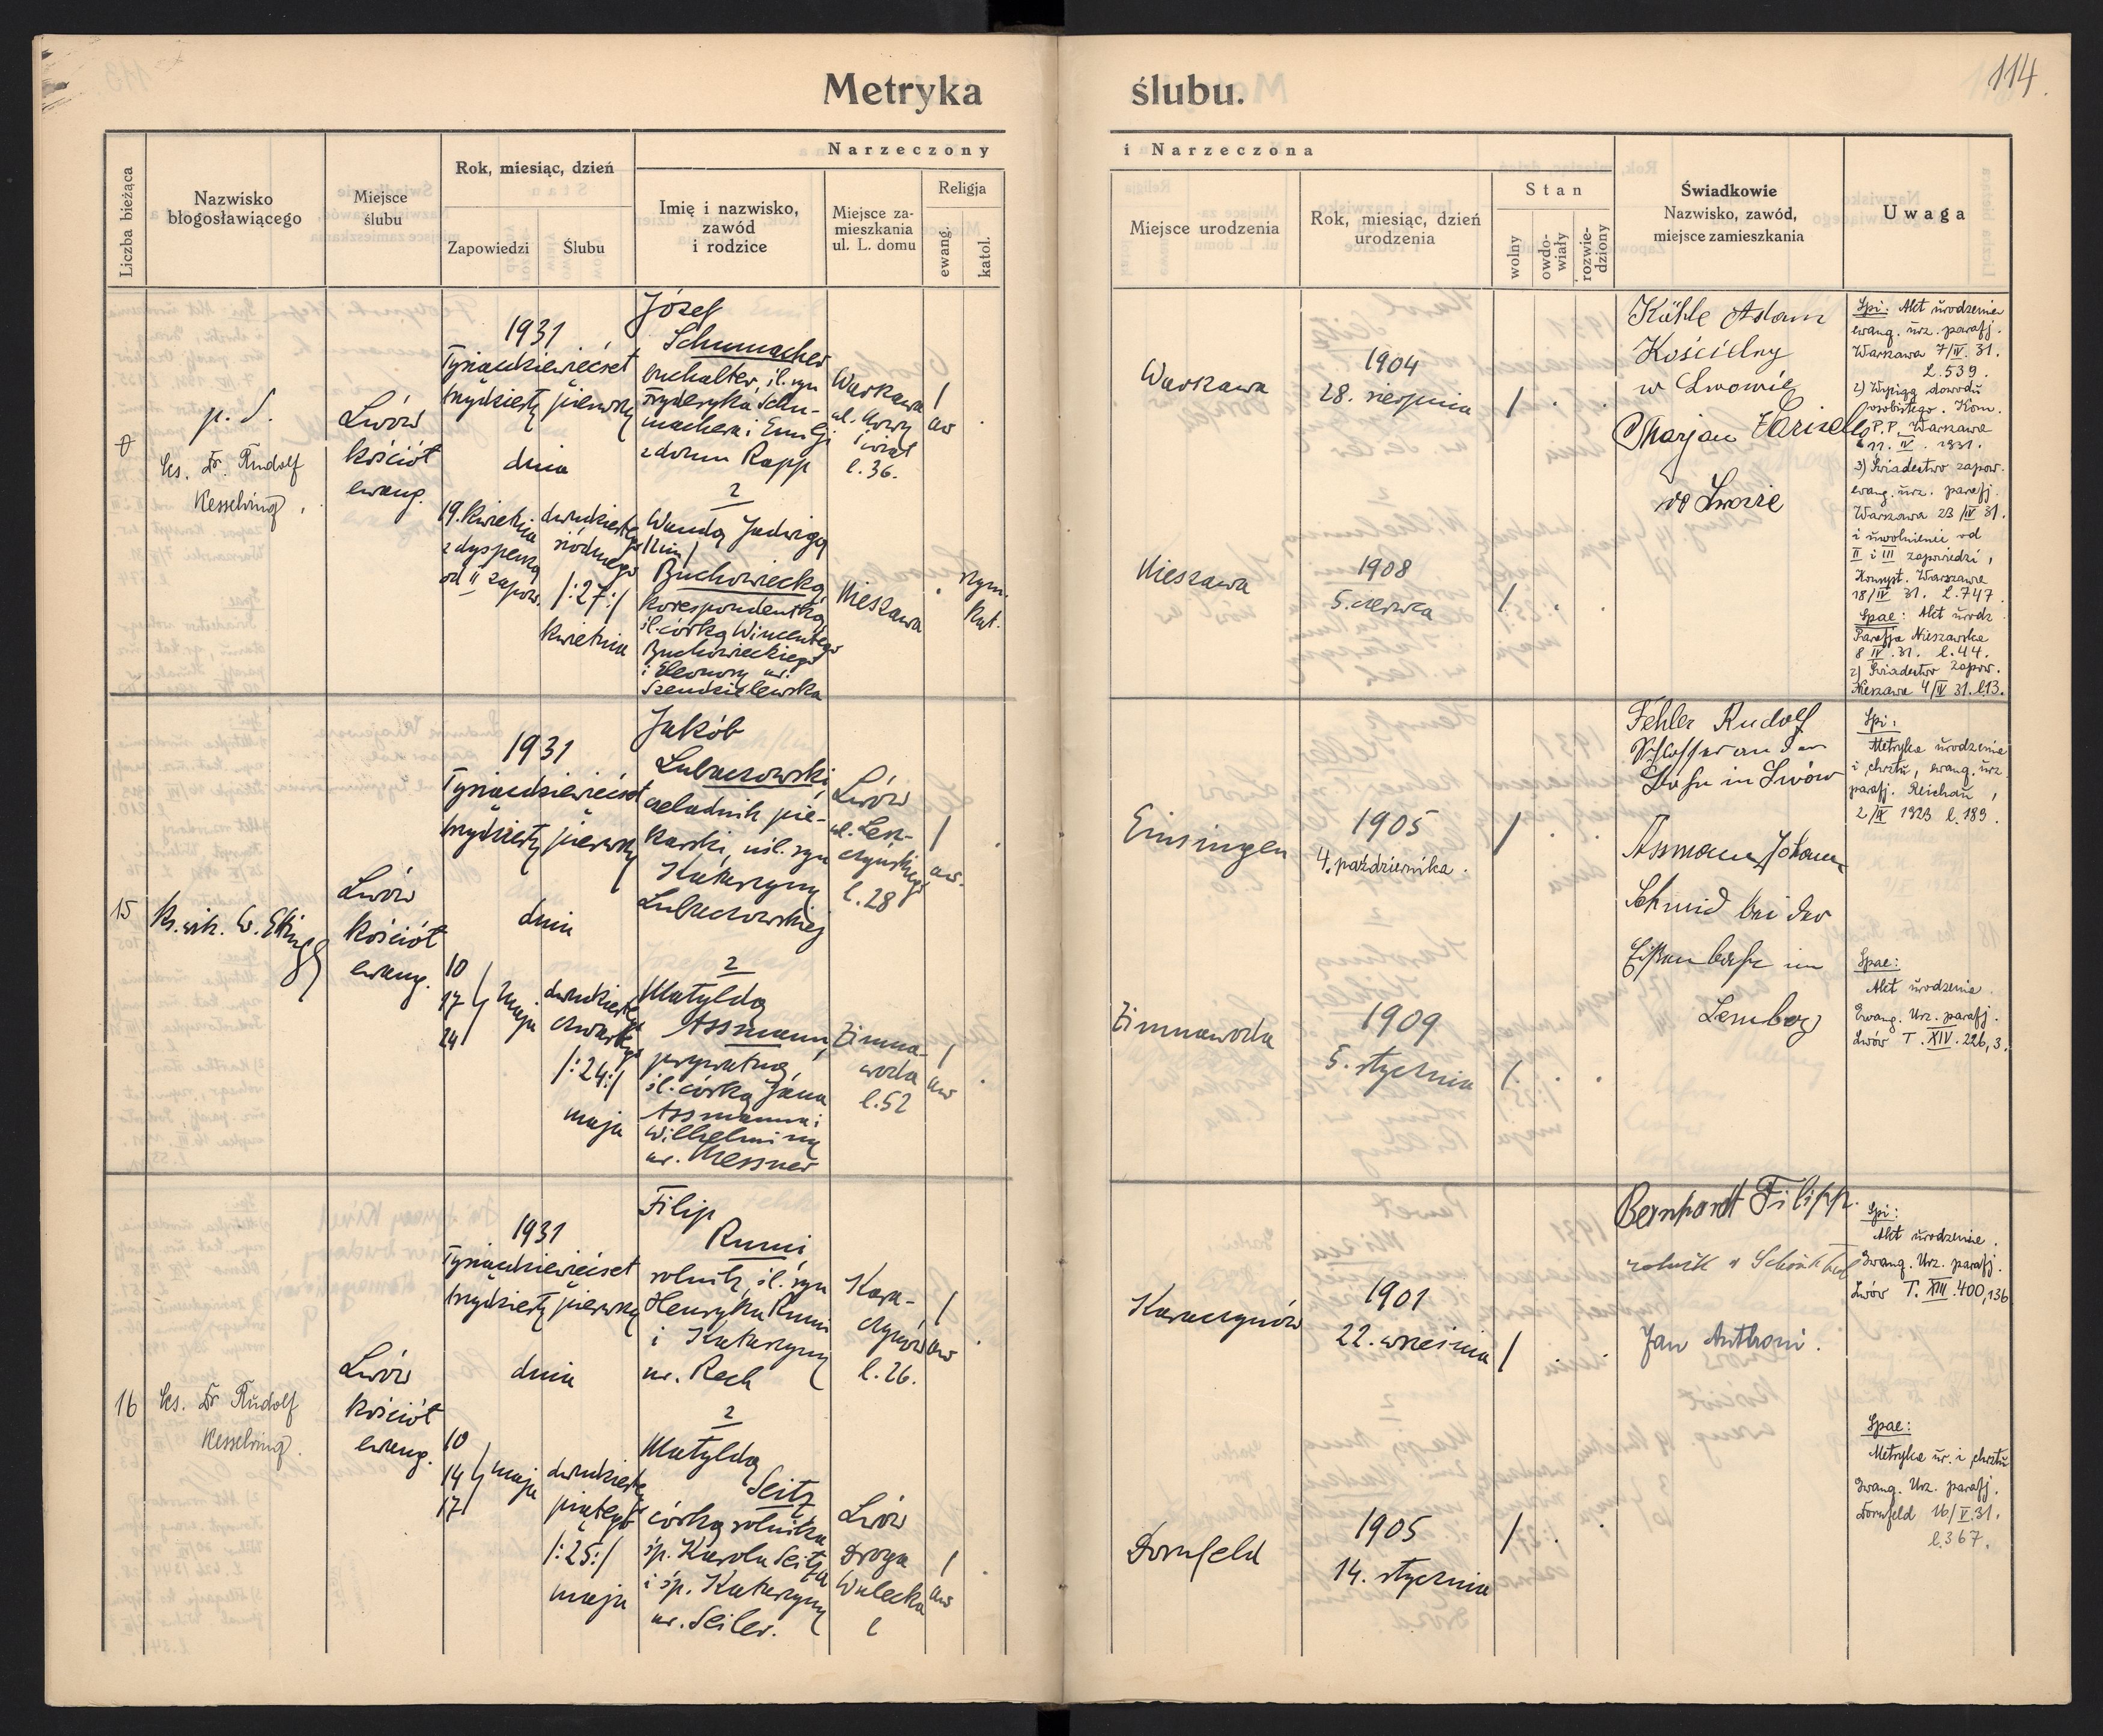 114
Metryka ślubu.
Liczba bieżąca
Nazwisko
błogosławiącego
Miejsce
ślubu
Rok, miesiąc, dzień
Zapowiedzi
Ślubu
Narzeczony
Imię i nazwisko,
zawód
i rodzice
Miejsce za-
mieszkania
ul. L. domu
Religja
ewang.
katol.
i Narzeczona
Miejsce urodzenia
Rok, miesiąc, dzień
urodzenia
Stan
wolny
owdo-
wiały
rozwie-
dziony
Świadkowie
Nazwisko, zawód,
miejsce zamieszkania
Uwaga
p. d.
ks. Dr. Rudolf
Kesselring.
Lwów
kościół
ewang.
1931
Tysiącdziewięćset
trzydzieśty pierwszy
dnia
19. kwietnia
z dyspenzą
od II zapow.
dwudziestego
siódmego
/:27:/
kwietnia
Józef
Schumacher
buchalter, śl. syn
Fryderyka Schu-
machera i Emilji
z domu Rapp
2
Wandą Jadwigą
/2 im./
Buchowiecką,
korespondentką,
śl. córką Wincentego
Buchowieckiego
i Eleonory ur.
Szendzielewska
Warszawa
ul. Nowy
świat
l. 36.
/
aw
Nieszawa
rzym.
kat.
Warszawa
1904
28. sierpnia
/
Nieszawa
1908
5. czerwca
/
Kühle Adam
Kościelny
w Lwowie
Marjan
we Lwowie
Spi: Akt urodzenia
ewang. urz. parafj.
Warszawa 7/IV. 31.
L. 539.
2) Wyciąg dowodu
osobistego. Kom.
P.P. Warszawa
11. IV. 1931.
3) Świadectwo zapow.
ewang. urz. parafj.
Warszawa 23/IV 31.
i uwolnienie od
II i III zapowiedzi,
Konsyst. Warszawa
18/IV 31. L. 747.
Spae: Akt urodz.
Parafja Nieszawska
8 IV. 31. l. 44.
2) Świadectwo zapow.
Nieszawa 4/IV 31. l.13.
15
Ks. wik.
Lwów
kościół
ewang.
1931
Tysiącdziewięćset
trzydzieśty pierwszy
dnia
10
17 maja
24
dwudziestego
czwartego
/:24:/
maja
Jakób
Lubaczowski,
czeladnik pie-
karski, nśl. syn
Katarzyny
Lubaczowskiej
2
Matyldą
Assmann,
prywatną,
śl. córką Jana
Assmanna i
Wilhelminy
ur. Messner
Lwów
ul. Lesz-
czyńskiego
l. 28
/
aw.
Zimna-
woda
l. 52
/
aw
Einsingen
1905
4. października.
/
Zimnawoda
1909
5. stycznia
/
Fehler Rudolf
Schlosser an der
in Lwów
Assmann Johann
Schmid bei der
Eisenbahn in
Lemberg
Spi:
Metryka urodzenia
i chrztu, ewang. urz.
parafj. Reichau,
2/IX 1923 l. 189.
Spae:
Akt urodzenia.
Ewang. Urz. parafj.
Lwów T. XIV. 226, 3.
16
ks. Dr Rudolf
Kesselring.
Lwów
kościół
ewang.
1931
Tysiącdziewięćset
trzydzieśty pierwszy
dnia
10
14 maja
17
dwudziestego
piątego
/:25:/
maja
Filip
Rumi,
rolnik, śl. syn
Henryka Rumi
i Katarzyny
ur. Rech
2
Matyldą
Seitz
córką rolnika
śp. Karola Seitza
i śp. Katarzyny
ur. Seiler.
Kara-
czynów
l. 26.
/
aw
Lwów
Droga
Wulecka
l
/
aw
Karaczynów
1901
22. września
/
Dornfeld
1905
14. stycznia
/
Bernhardt Filipp.
rolnik w
Jan Anthoni.
Spi:
Akt urodzenia.
Ewang. Urz. parafj.
Lwów T. XIII. 400, 136
Spae:
Metryka ur. i chrztu
Ewang. Urz. parafj.
Dornfeld 16/V. 31.
l. 367.